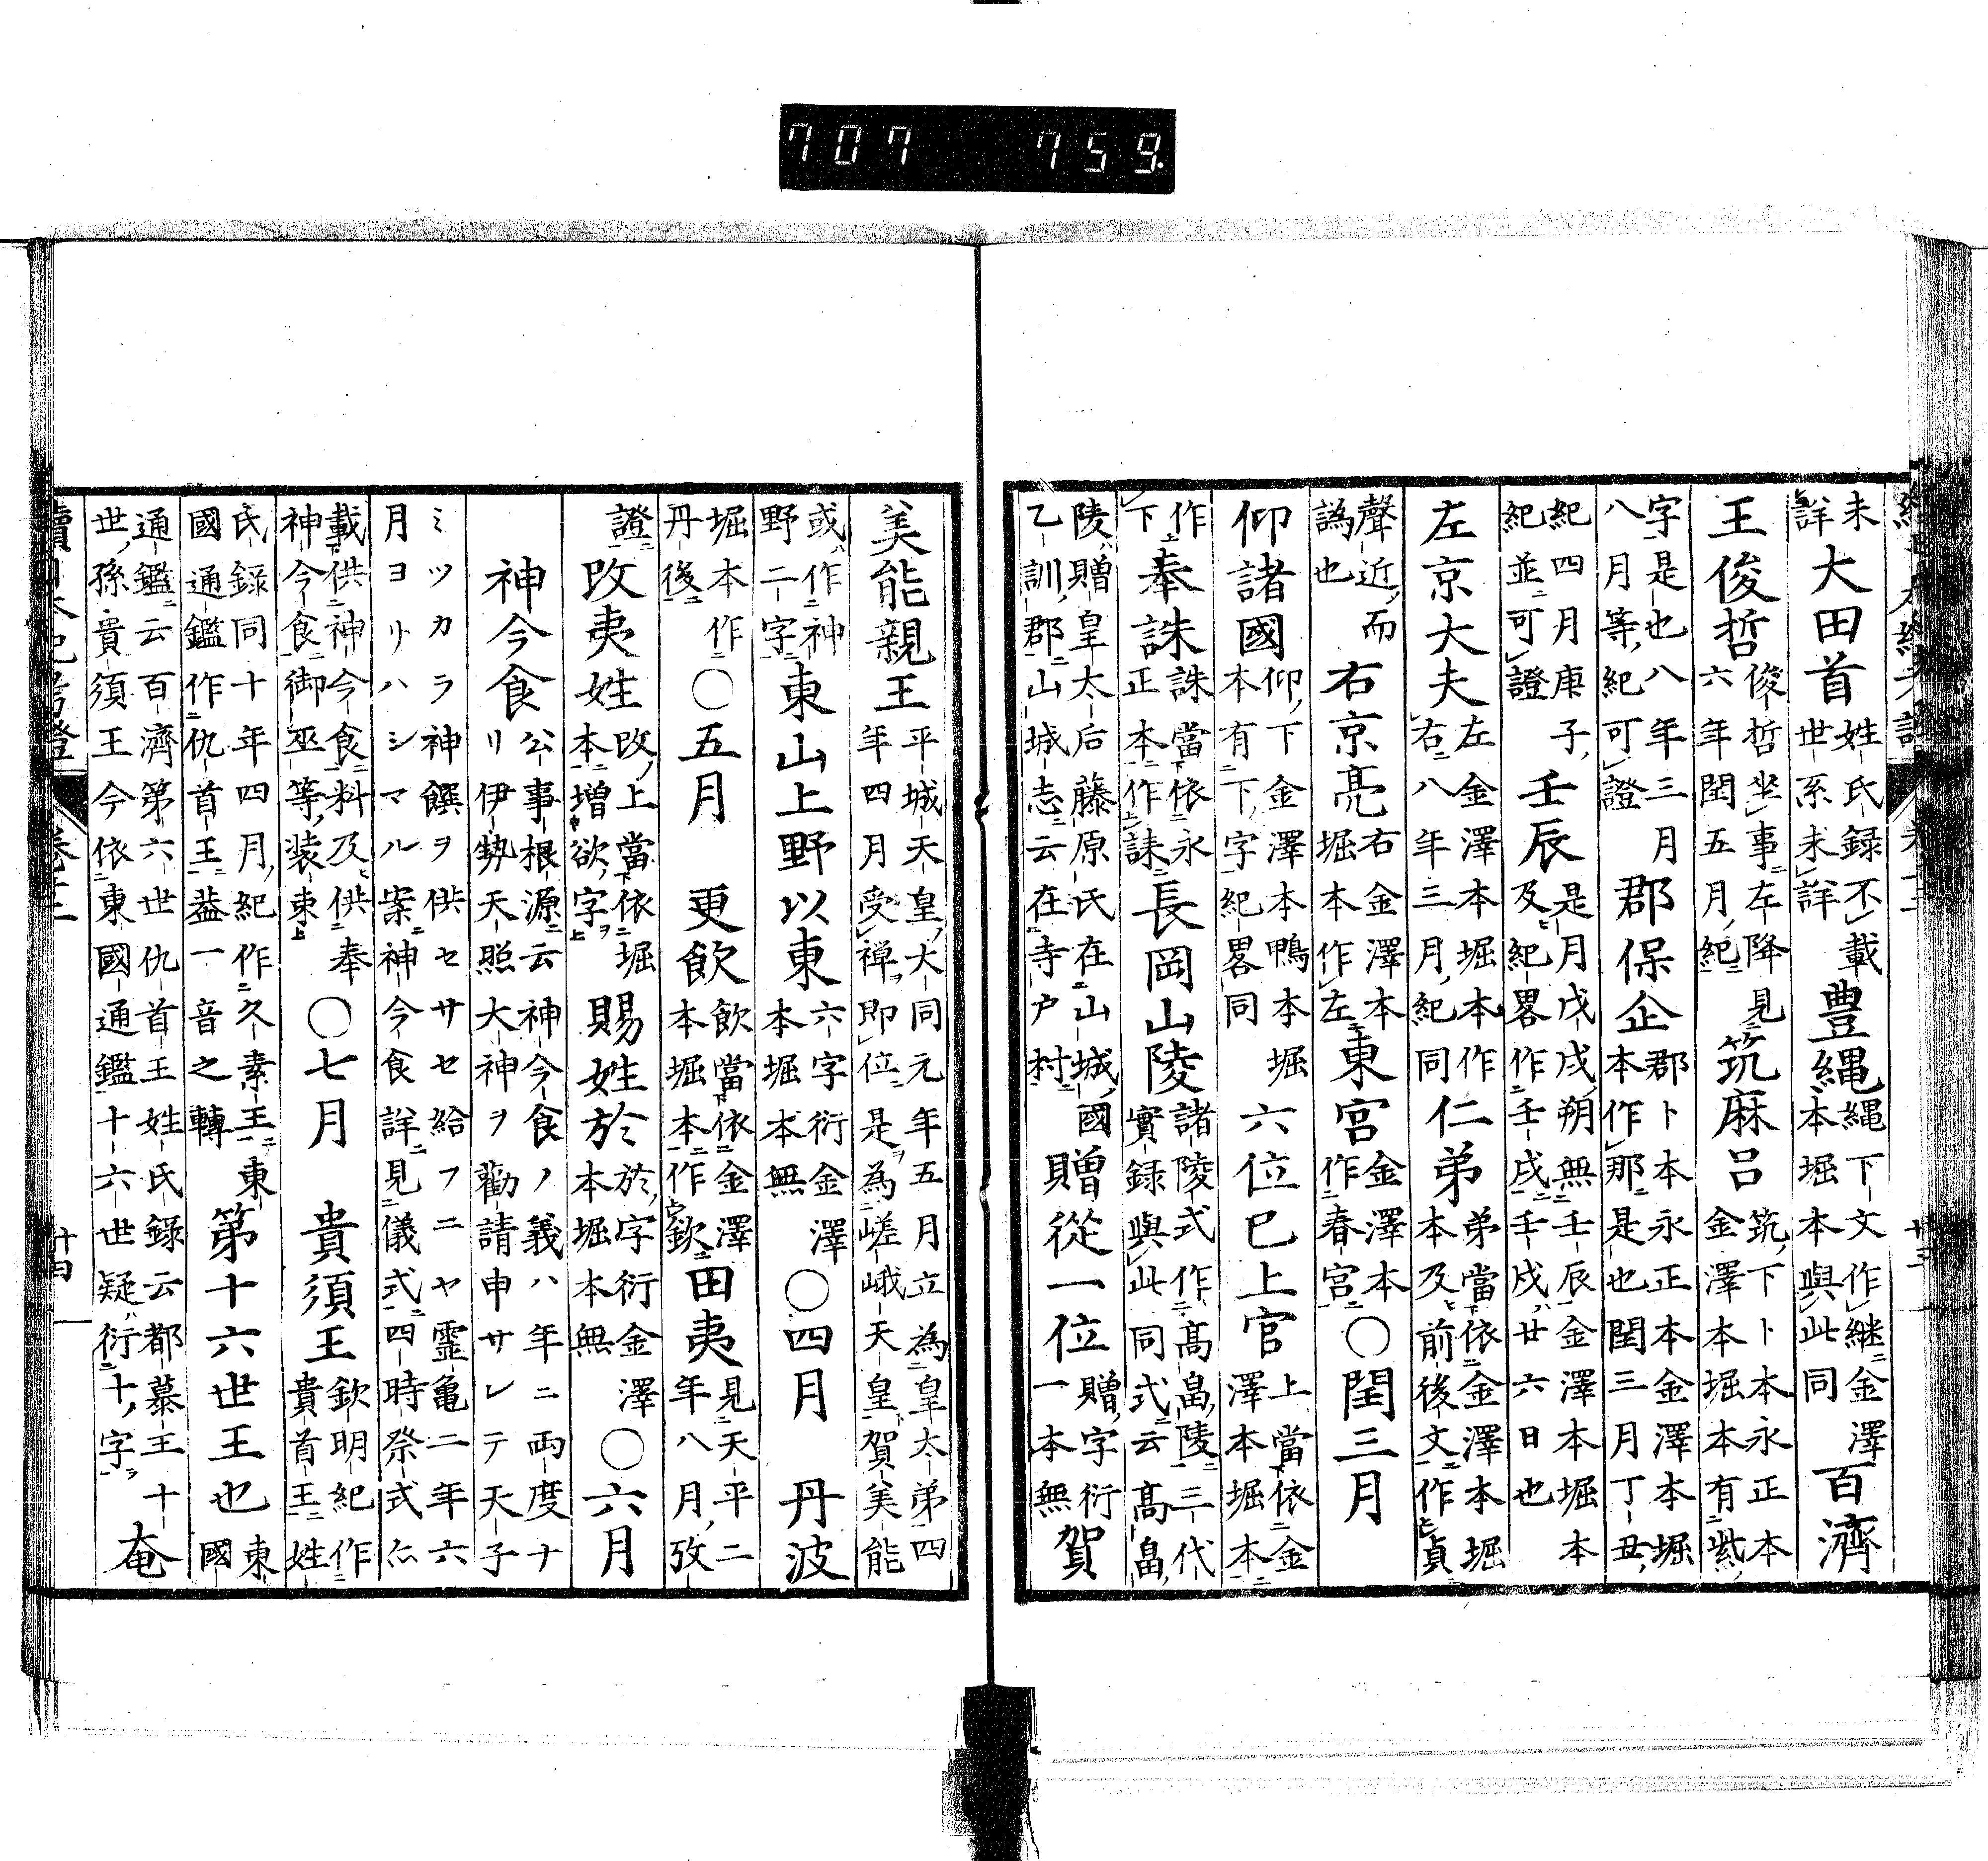 未詳大田首姓氏録不載世系未詳豊縄縄下文作継金澤本堀本與此同百濟
王俊哲俊哲坐事左降見六年閏五月紀筑麻呂筑下卜本永正本金澤本堀本有紫
字是也八年三月八月等紀可證郡保企郡卜本永正本金澤本堀本作那是也閏三月丁丑
紀四月庚子紀並可證壬辰是月戊戌朔無壬辰金澤本堀本及紀畧作壬戌壬戌廿六日也
左京大夫左金澤本堀本作右八年三月紀同仁弟弟當依金澤本堀本及前後文作貞
聲近而譌也右京亮右金澤本堀本作左東宮金澤本作春宮○閏三月
仰諸國仰下金澤本鴨本堀本有下字紀畧同六位已上官上當依金澤本堀本
作下奉誅誅當依永正本作誄長岡山陵諸陵式作高畠陵三代實録與此同式云高畠
陵贈皇太后藤原氏在山城國乙訓郡山城志云在寺戸村贈從一位贈字衍一本無賀
美能親王平城天皇大同元年五月立為皇太弟四年四月受禅即位是為嵯峨天皇賀美能
或作神野二字東山上野以東六字衍金澤本堀本無○四月 丹波
堀本作丹後○五月 更飲飲當依金澤本堀本作欽田夷見天平二年八月攷
證改夷姓改上當依堀本増欲字賜姓於於字衍金澤本堀本無○六月
神今食公事根源云神今食ノ義ハ年ニ両度ナリ伊勢天照大神ヲ勸請申サレテ天子
ミツカラ神饌ヲ供セサセ給フニヤ靈亀二年六月ヨリハシマル案神今食詳見儀式四時祭式尓
載供神今食料及供奉神今食御巫等装束○七月 貴須王欽明紀作貴首王姓
氏録同十年四月紀作久素王東國通鑑作仇首王葢一音之轉第十六世王也東國
通鑑云百濟第六世仇首王姓氏録云都慕王十世孫貴須王今依東國通鑑十六世疑衍十字奄
707 759.